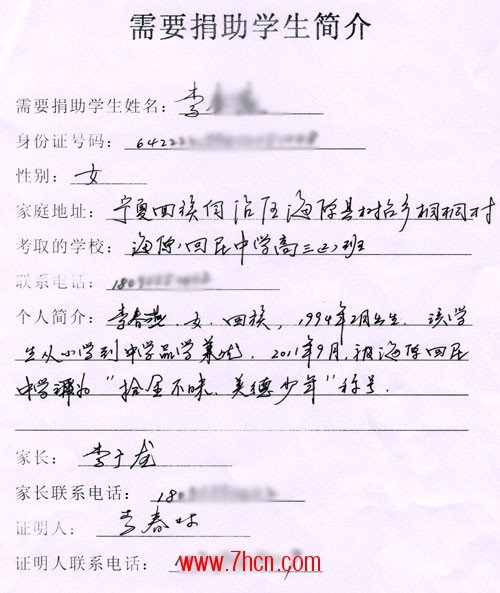 需要捐助学生简介
需要捐助学生姓名：李
身份证号码：64222
性别：女
家庭地址：宁夏回族自治区海原县树台乡桐桐村
考取的学校：海原回民中学高三(2)班
联系电话：180
个人简介：李春燕、女、回族，1994年2月出生。该学
生从小学到中学品学兼优，2011年9月，被海原回民
中学评为“拾金不昧、美德少年”称号。
家长：李于龙
家长联系电话：180
证明人：李春
证明人联系电话：
www.7hcn.com